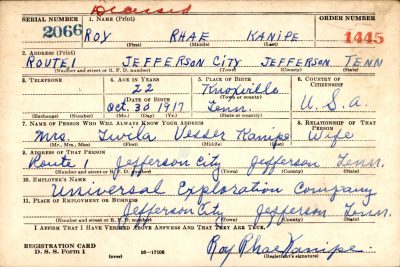 Deceased
SERIAL NUMBER 1. NAME (Print) ORDER NUMBER
2066 ROY RHAE KANIPE 1445
(First) (Middle) (Last)
2. ADDRESS (Print)
ROUTE 1 JEFFERSON CITY JEFFERSON TENN
(Number and street or R. F. D. number) (Town) (County) (State)
3. TELEPHONE 4. AGE IN YEARS 5. PLACE OF BIRTH 6. COUNTRY OF CITIZENSHIP
22 Knoxville
(Town or county)
DATE OF BIRTH
Oct. 30 1917 Tenn. U.S.a.
(Exchange) (Number) (Mo.) (Day) (Yr.) (State or country)
7. NAME OF PERSON WHO WILL ALWAYS KNOW YOUR ADDRESS 8. RELATIONSHIP OF THAT PERSON
Mrs. Twila Vesser Kanipe Wife
(Mr., Mrs., Miss) (First) (Middle) (Last)
9. ADDRESS OF THAT PERSON
Route 1 Jefferson City Jefferson Tenn.
(Number and street or R. F. D. number) (Town) (County) (State)
10. EMPLOYER'S NAME
Universal Exploration Company
11. PLACE OF EMPLOYMENT OR BUSINESS
Jefferson City Jefferson Tenn.
(Number and street or R. F. D. number) (Town) (County) (State)
I AFFIRM THAT I HAVE VERIFIED ABOVE ANSWERS AND THAT THEY ARE TRUE.
REGISTRATION CARD
D. S. S. Form 1 (over) 16—17105 Roy Rhae Kanipe
(Registrant's signature)